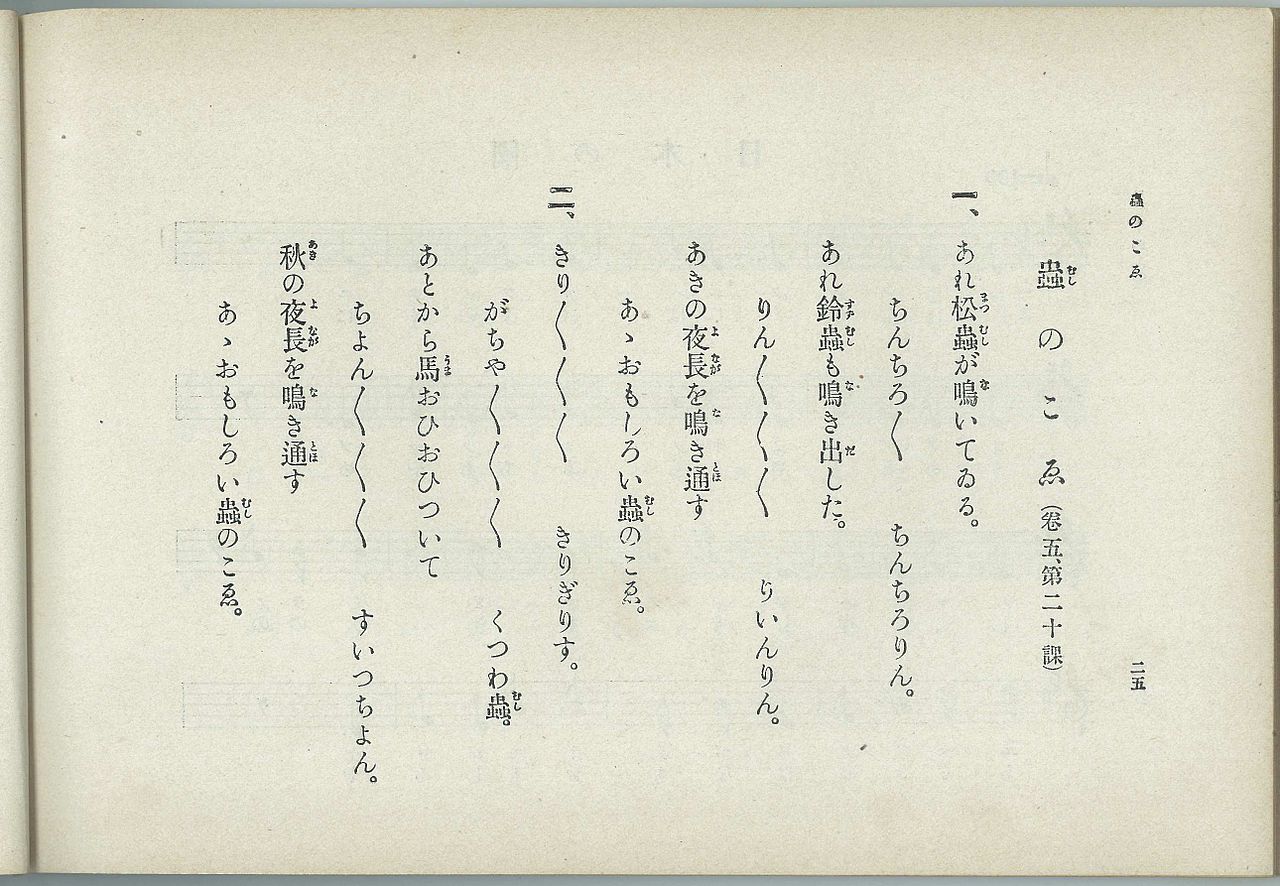 蟲のこゑ 二五
蟲のこゑ(卷五、第二十課)
一、あれ松蟲が鳴いてゐる。
ちんちろ〱 ちんちろりん。
あれ鈴蟲も鳴き出した。
りん〱〱〱 りいんりん。
あきの夜長を鳴き通す
あゝおもしろい蟲のこゑ。
二、きり〱〱〱 きりぎりす。
がちや〱〱〱 くつわ蟲。
あとから馬おひおひついて
ちよん〱〱〱 すいつちよん。
秋の夜長を鳴き通す
あゝおもしろい蟲のこゑ。